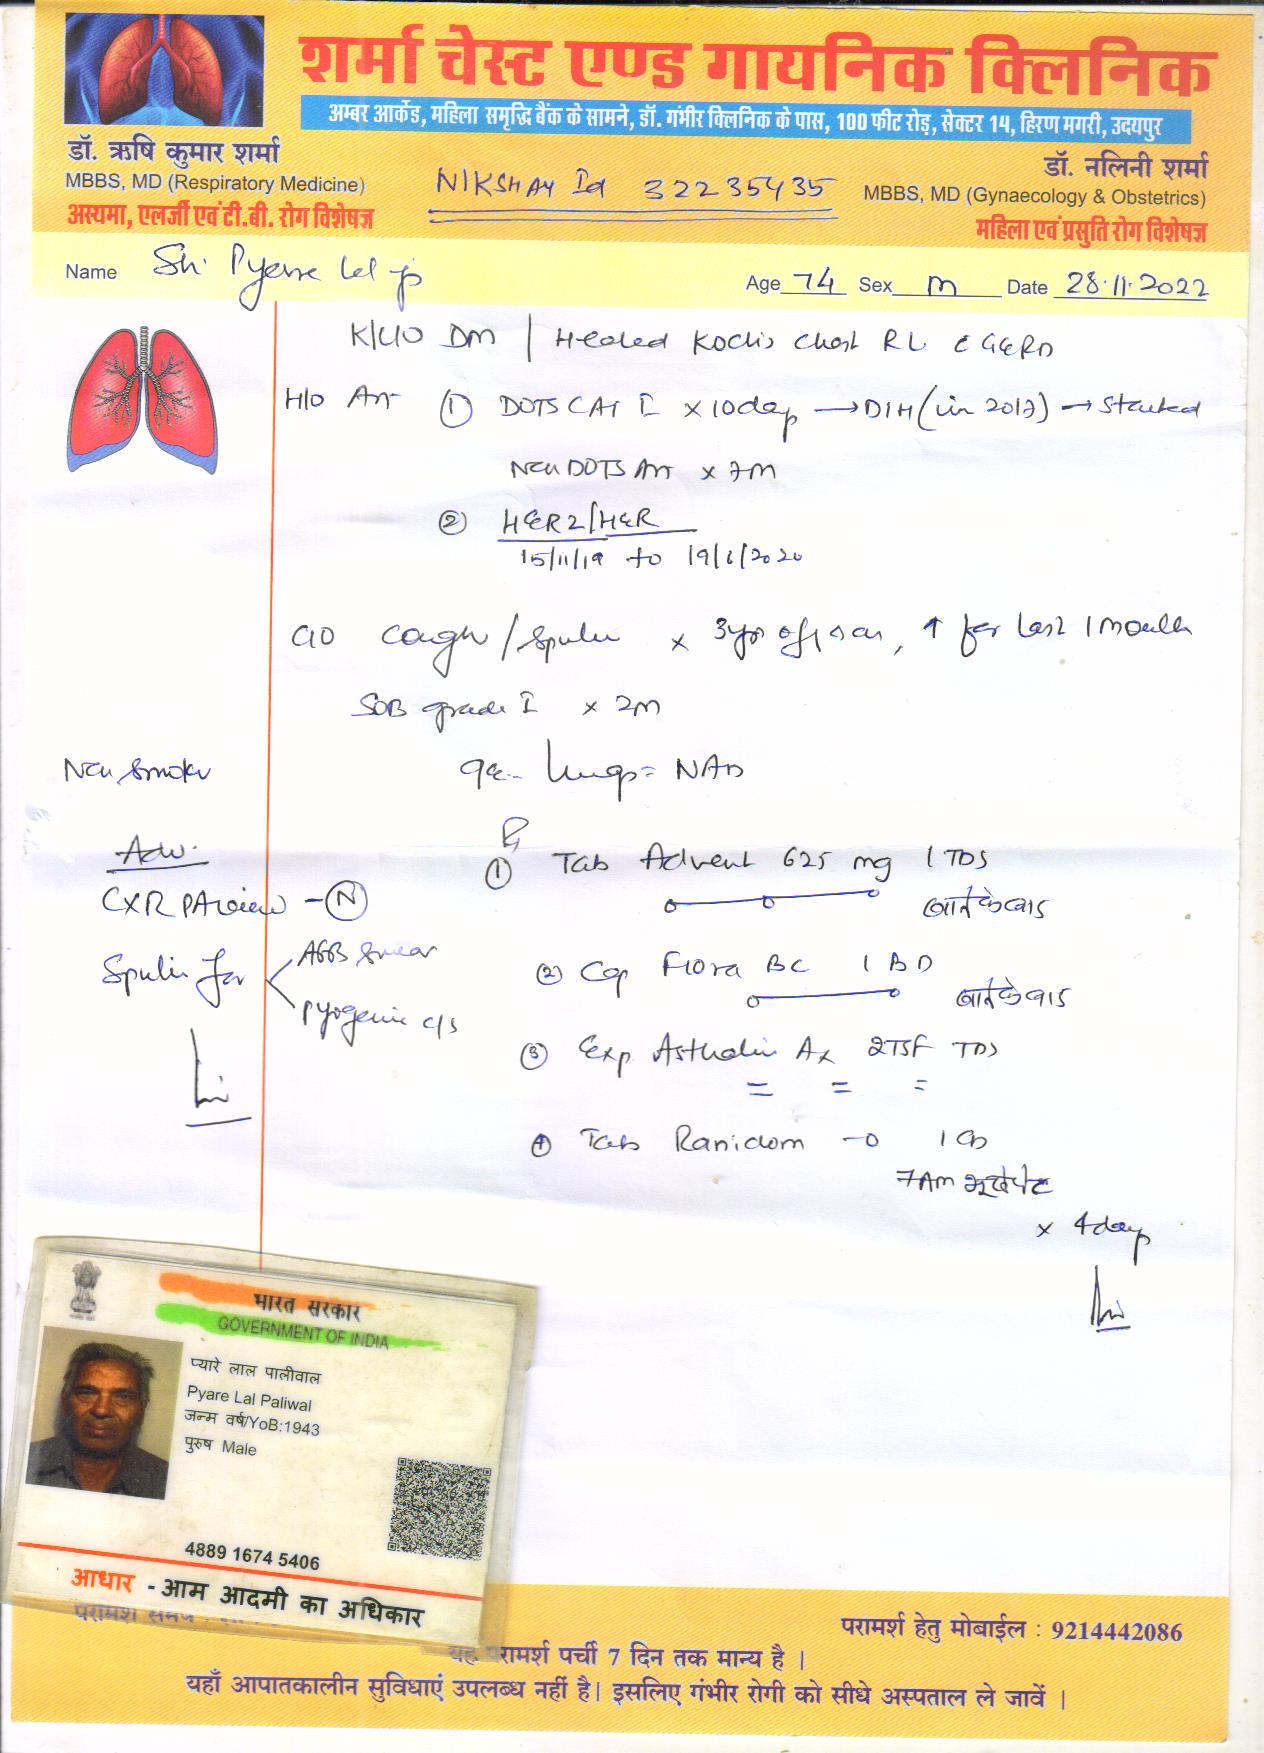 शर्मा चेस्ट एण्ड गायनिक क्लिनिक
अम्बर आर्केड, महिला समृद्धि बैंक के सामने, डॉ. गंभीर क्लिनिक के पास, 100 फीट रोड़, सेक्टर 14, हिरण मगरी, उदयपुर
डॉ. ऋषि कुमार शर्मा
MBBS, MD (Respiratory Medicine)
अस्थमा, एलर्जी एवं टी.बी. रोग विशेषज्ञ
NIKSHAY Id 32235435
डॉ. नलिनी शर्मा
MBBS, MD (Gynaecology & Obstetrics)
महिला एवं प्रसुति रोग विशेषज्ञ
Name Sh. Pyare Lal ji
Age 74 Sex M Date 28.11.2022
K/C/O DM / Healed Koch's Chest RL c GERD
H/O ATT ① DOTS CAT I x 10 day → DIH (in 2017) → Started
DOTS ATT x 7M
②
15/11/19 to 19/6/2020
C/O Cough / Sputum x 3yr off & on, ↑ for last 1 month
SOB grade I x 2M
Non Smoker
Lungs = NAD
Adv.
CXR PA view - N
Sputum for AFB Smear
Pyogenic c/s
Rx
① Tab Advent 625 mg 1 TDS
खाने के बाद
② Cap Flora BC 1 BD
खाने के बाद
③ Exp Asthalin AX 2TSF TDS
④ Tab Ranidom -O 1 OD
7AM भूखे पेट
x 4 day
भारत सरकार
GOVERNMENT OF INDIA
प्यारे लाल पालीवाल
Pyare Lal Paliwal
जन्म वर्ष/YoB:1943
पुरुष Male
4889 1674 5406
आधार - आम आदमी का अधिकार
परामर्श हेतु मोबाईल : 9214442086
यह परामर्श पर्ची 7 दिन तक मान्य है ।
यहाँ आपातकालीन सुविधाएं उपलब्ध नहीं है। इसलिए गंभीर रोगी को सीधे अस्पताल ले जावें ।